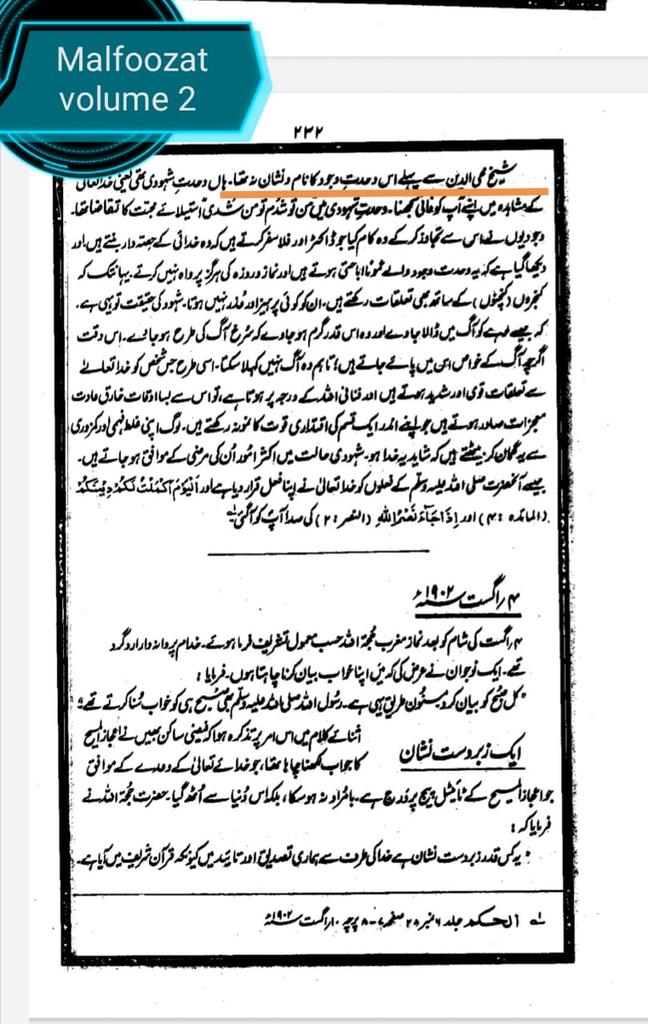 Malfoozat
volume 2
۲۳۲
شیخ محی الدین سے پہلے اس وحدتِ وجود کا نام و نشان نہ تھا۔ ہاں وحدتِ شہودی تھی یعنی خدا تعالیٰ
کے مشاہدہ میں اپنے آپ کو فانی سمجھنا۔ وحدتِ شہودی میں من تو شدم تو من شدی استیلائے محبت کا تقاضا تھا۔
وجودیوں نے اس سے تجاوز کر کے وہ کام کیا جو ڈاکٹر اور فلاسفر کرتے ہیں کہ وہ خدائی کے حصہ دار بنتے ہیں، اور
دیکھا گیا ہے کہ یہ وحدت وجود والے عموماً اباحتی ہوتے ہیں اور نماز و روزہ کی ہرگز پرواہ نہیں کرتے۔ یہانتک کہ
کنجروں (کنچنوں) کے ساتھ بھی تعلقات رکھتے ہیں۔ ان کو کوئی پرہیز اور عذر نہیں ہوتا۔ شہود کی حقیقت تو یہی ہے۔
کہ جیسے لوہے کو آگ میں ڈالا جاوے اور وہ اس قدر گرم ہو جاوے کہ سُرخ آگ کی طرح ہو جائے۔ اس وقت
اگرچہ آگ کے خواص اس میں پائے جاتے ہیں؛ تاہم وہ آگ نہیں کہلا سکتا۔ اسی طرح جس شخص کو خدا تعالےٰ
سے تعلقات قوی اور شدید ہوتے ہیں اور فنا فی اللہ کے درجہ پر ہوتا ہے، تو اس سے بسا اوقات خارق عادت
معجزات صادر ہوتے ہیں جو اپنے اندر ایک قسم کی اقتداری قوت کا نمونہ رکھتے ہیں۔ لوگ اپنی غلط فہمی اور کمزوری
سے یہ گمان کر بیٹھتے ہیں کہ شاید یہ خدا ہو۔ شہودی حالت میں اکثر امور اُن کی مرضی کے موافق ہو جاتے ہیں۔
جیسے آنحضرت صلی اللہ علیہ وسلم کے فعلوں کو خدا تعالیٰ نے اپنا فعل قرار دیا ہے اور اَلْیَوْمَ اَکْمَلْتُ لَکُمْ دِیْنَکُمْ
(المائدہ : ۴) اور اِذَا جَآءَ نَصْرُ اللهِ (النصر : ۲) کی صدا آپ کو آگئی لہ
۴ اگست ۱۹۰۲ء
۴ اگست کی شام کو بعد نماز مغرب حجۃ اللہ حسب معمول تشریف فرما ہوئے۔ خدام پروانہ وار ارد گرد
تھے۔ ایک نوجوان نے عرض کی کہ میں اپنا خواب بیان کرنا چاہتا ہوں۔ فرمایا :
کل صبح کو بیان کرو مسنون طریق یہی ہے۔ رسول اللہ صلی اللہ علیہ وسلم بھی صبح ہی کو خواب سُنا کرتے تھے۔
ایک زبردست نشان
اثنائے کلام میں اس امر پر تذکرہ ہوا کہ فیضی ساکن بھیں نے اعجاز المسیح
کا جواب لکھنا چاہا تھا، جو خدائے تعالیٰ کے وعدے کے موافق
جو اعجاز المسیح کے ٹائیٹل پیج پر درج ہے۔ بامراد نہ ہو سکا، بلکہ اس دُنیا سے اُٹھ گیا۔ حضرت حجۃ اللہ نے
فرمایا کہ :
یہ کس قدر زبردست نشان ہے خدا کی طرف سے ہماری تصدیق اور تائید میں کیونکہ قرآن شریف میں آیا ہے۔
لہ الحکم جلد ۶ نمبر ۲۸ صفحہ ۷-۸ پرچہ ۱۰ اگست ۱۹۰۲ء